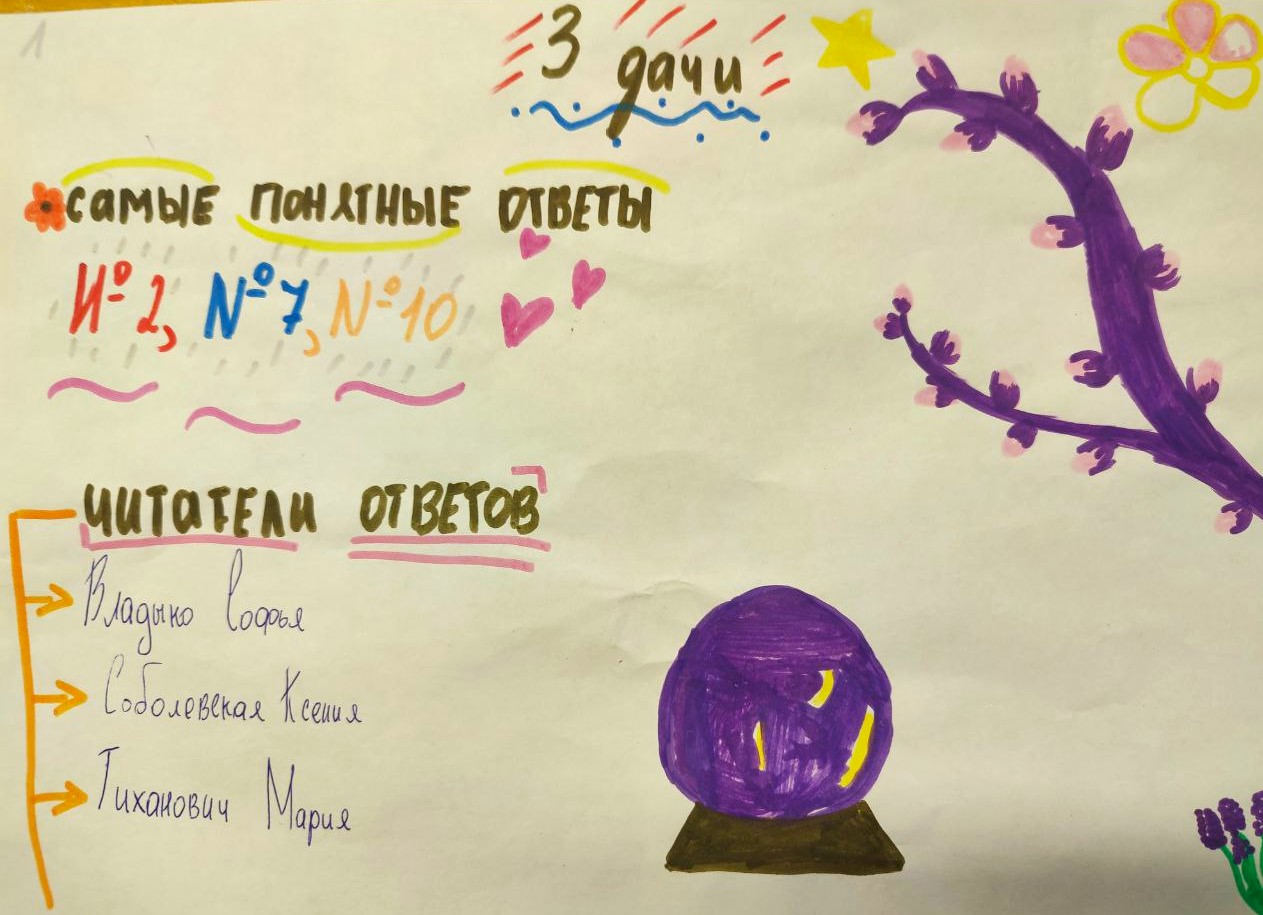 1
3 дачи
САМЫЕ ПОНЯТНЫЕ ОТВЕТЫ
№2, №7, №10
ЧИТАТЕЛИ ОТВЕТОВ
Владыко Софья
Соболевская Ксения
Тиханович Мария